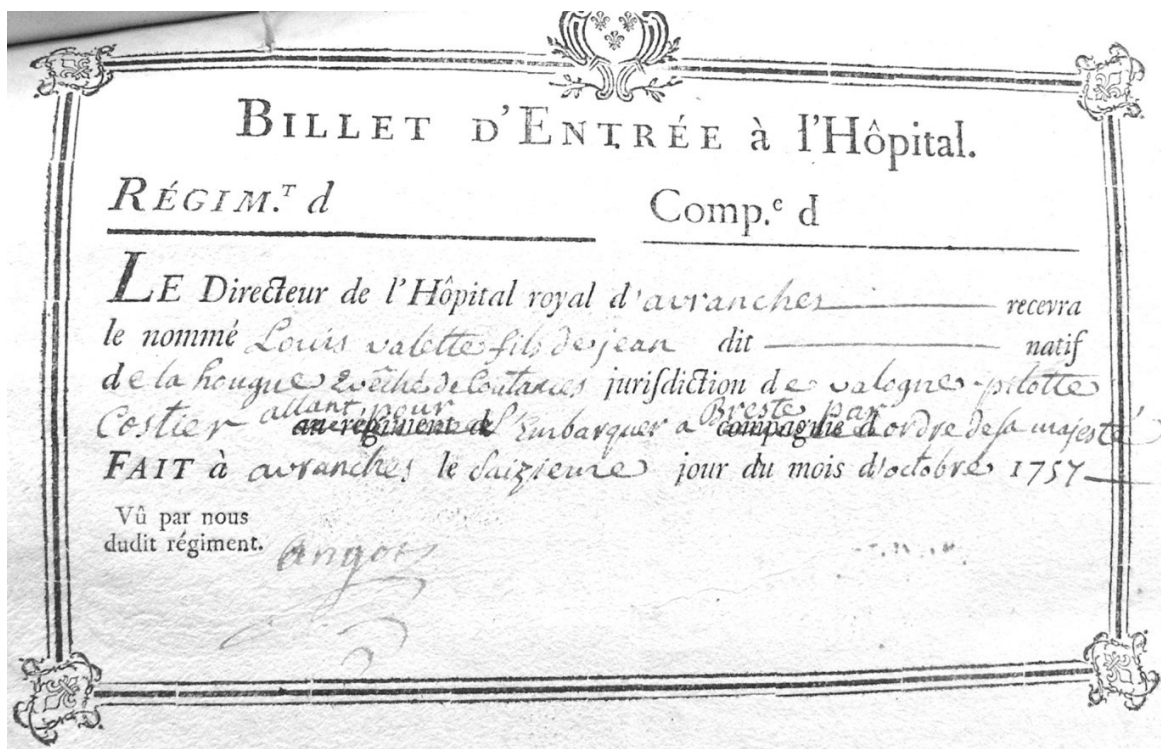 BILLET D'ENTRÉE à l'Hôpital.
RÉGIM.T d Comp.e d
LE Directeur de l'Hôpital royal d'avranches recevra
le nommé Louis valette fils de jean dit natif
de la hougue Evêché de Coutances jurisdiction de valogne pilotte
Costier allant pour s'Embarquer a Breste par ordre de sa majesté
au régiment de compagnie d
FAIT à avranches le saizieme jour du mois d'octobre 1757
Vû par nous
dudit régiment. angot